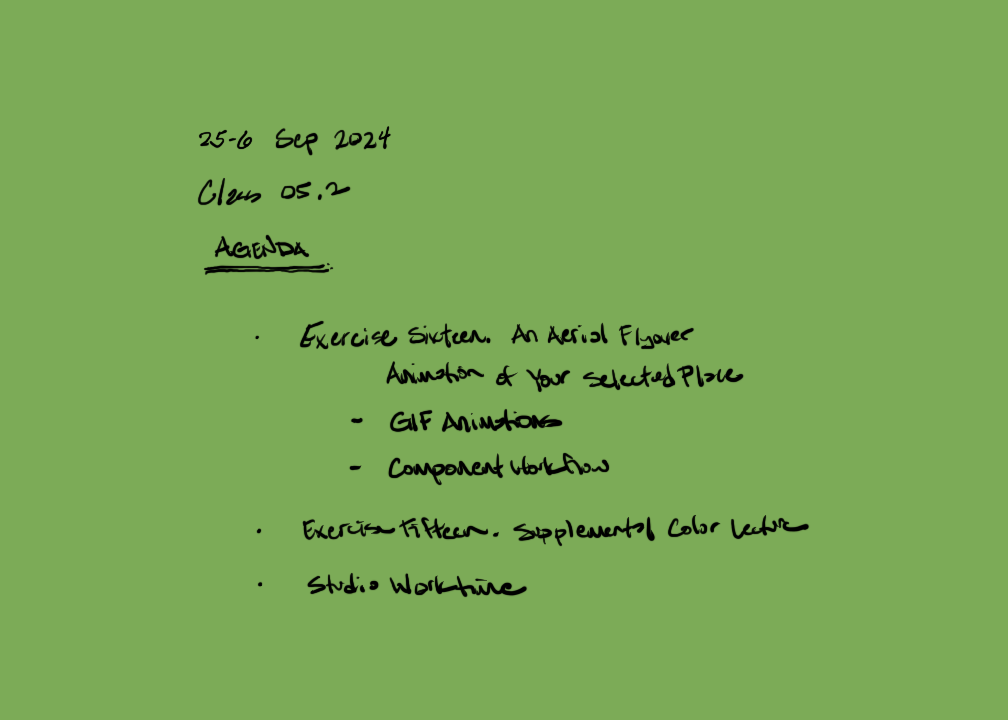 25-6 Sep 2024
Class 05.2
AGENDA
· Exercise Sixteen. An Aerial Flyover
Animation of Your Selected Place
- GIF Animations
- Component Workflow
· Exercise Fifteen. Supplemental Color Lecture
· Studio Worktime